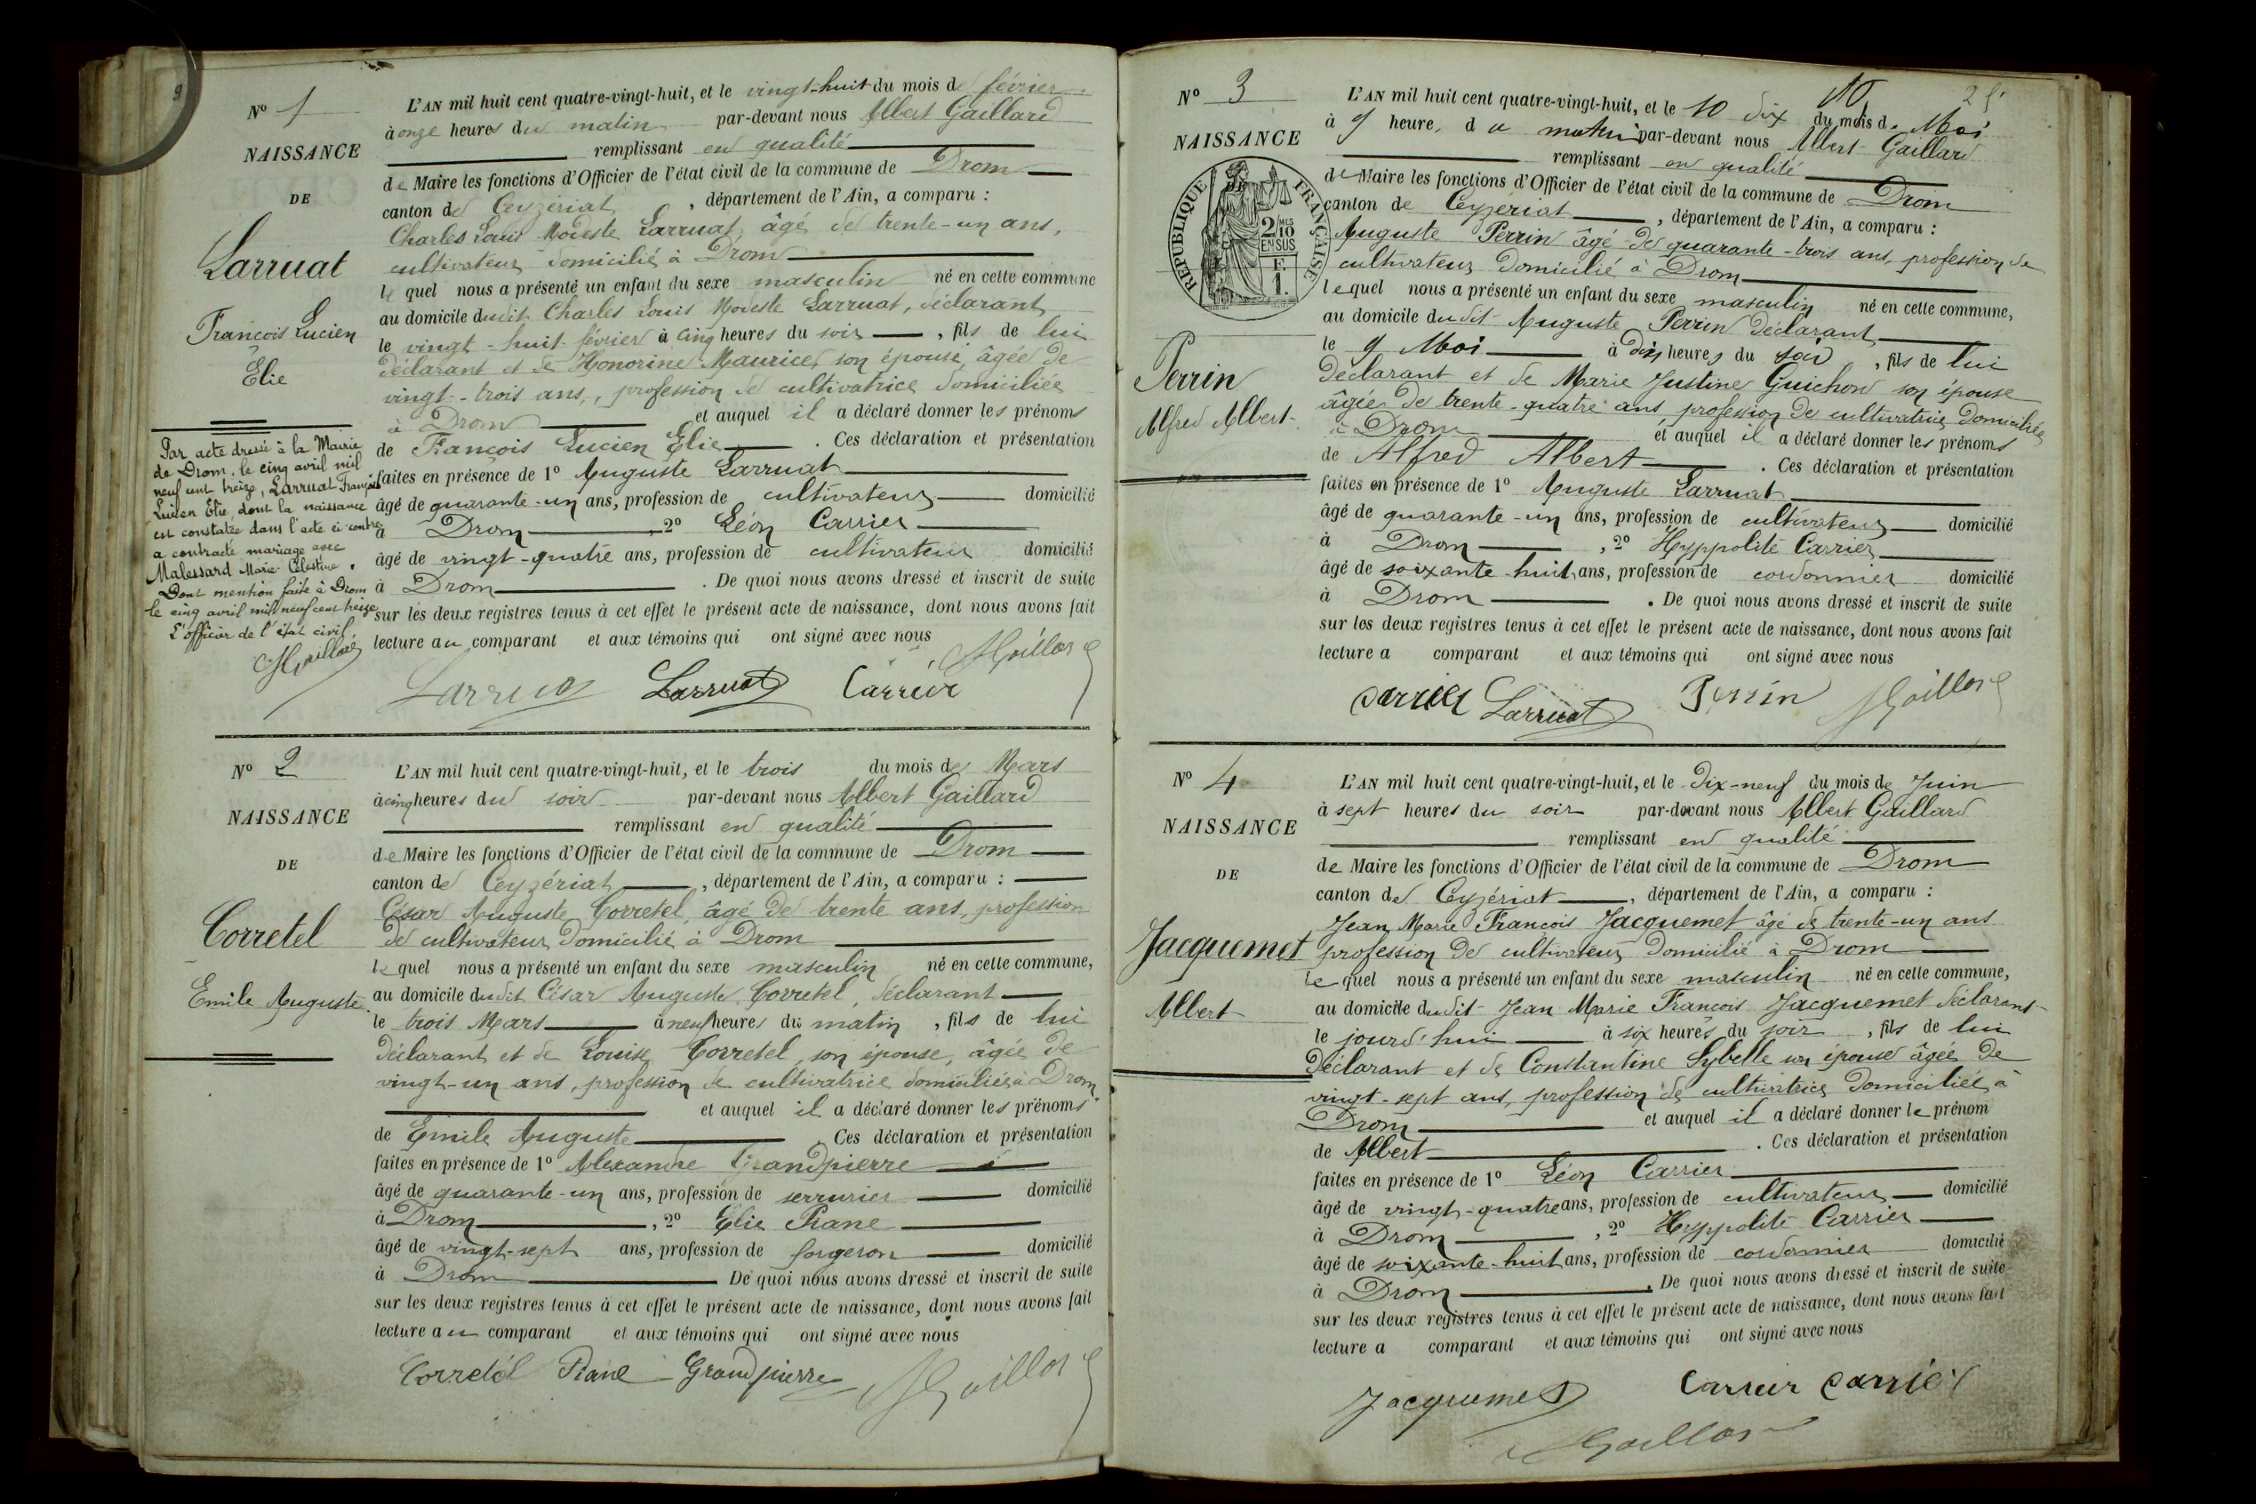 N° 1
NAISSANCE
DE
Larruat
François Lucien
Élie
Par acte dressé à la Mairie
de Drom, le cinq avril mil
neuf cent treize, Larruat François
Lucien Élie, dont la naissance
est constatée dans l'acte ci-contre
a contracté mariage avec
Malessard Marie Célestine.
Dont mention faite à Drom
le cinq avril mil neuf cent treize
L'officier de l'état civil,
AGaillard
L'AN mil huit cent quatre-vingt-huit, et le vingt-huit du mois de février
à onze heures du matin par-devant nous Albert Gaillard
remplissant en qualité
de Maire les fonctions d'Officier de l'état civil de la commune de Drom
canton de Ceyzériat, département de l'Ain, a comparu :
Charles Louis Modeste Larruat, âgé de trente-un ans,
cultivateur domicilié à Drom
le quel nous a présenté un enfant du sexe masculin né en cette commune
au domicile dudit Charles Louis Modeste Larruat, déclarant
le vingt-huit février à cinq heures du soir, fils de lui
déclarant et de Honorine Maurice, son épouse âgée de
vingt-trois ans, profession de cultivatrice domiciliée
à Drom et auquel il a déclaré donner les prénoms
de François Lucien Elie. Ces déclaration et présentation
faites en présence de 1° Auguste Larruat
âgé de quarante-un ans, profession de cultivateur domicilié
à Drom 2° Léon Carrier
âgé de vingt-quatre ans, profession de cultivateur domicilié
à Drom. De quoi nous avons dressé et inscrit de suite
sur les deux registres tenus à cet effet le présent acte de naissance, dont nous avons fait
lecture au comparant et aux témoins qui ont signé avec nous
Larruat Larruat Carrier AGaillard
N° 2
NAISSANCE
DE
Corretel
Emile Auguste
L'AN mil huit cent quatre-vingt-huit, et le trois du mois de Mars
à cinq heures du soir par-devant nous Albert Gaillard
remplissant en qualité
de Maire les fonctions d'Officier de l'état civil de la commune de Drom
canton de Ceyzériat, département de l'Ain, a comparu :
César Auguste Corretel, âgé de trente ans, profession
de cultivateur domicilié à Drom
le quel nous a présenté un enfant du sexe masculin né en cette commune,
au domicile dudit César Auguste Corretel, déclarant
le trois Mars à neuf heures du matin, fils de lui
déclarant et de Louise Corretel, son épouse, âgée de
vingt-un ans, profession de cultivatrice domiciliée à Drom
et auquel il a déclaré donner les prénoms
de Emile Auguste Ces déclaration et présentation
faites en présence de 1° Alexandre Grandpierre
âgé de quarante-un ans, profession de serrurier domicilié
à Drom, 2° Elie Piane
âgé de vingt-sept ans, profession de forgeron domicilié
à Drom De quoi nous avons dressé et inscrit de suite
sur les deux registres tenus à cet effet le présent acte de naissance, dont nous avons fait
lecture au comparant et aux témoins qui ont signé avec nous
Corretel Piane Grandpierre AGaillard
N° 3
NAISSANCE
RÉPUBLIQUE FRANÇAISE
2/10 MES
EN SUS
F.
1.
Perrin
Alfred Albert
10
L'AN mil huit cent quatre-vingt-huit, et le 10 dix du mois d. Mai
à 9 heure, du matin par-devant nous Albert Gaillard
remplissant en qualité
de Maire les fonctions d'Officier de l'état civil de la commune de Drom
canton de Ceyzériat, département de l'Ain, a comparu :
Auguste Perrin âgé de quarante-trois ans, profession de
cultivateur domicilié à Drom
lequel nous a présenté un enfant du sexe masculin né en cette commune,
au domicile dudit Auguste Perrin déclarant
le 9 Mai à dix heures du soir, fils de lui
déclarant et de Marie Justine Guichon son épouse
âgée de trente-quatre ans profession de cultivatrice domiciliée
à Drom et auquel il a déclaré donner les prénoms
de Alfred Albert. Ces déclaration et présentation
faites en présence de 1° Auguste Larruat
âgé de quarante-un ans, profession de cultivateur domicilié
à Drom, 2° Hyppolite Carrier
âgé de soixante-huit ans, profession de cordonnier domicilié
à Drom. De quoi nous avons dressé et inscrit de suite
sur les deux registres tenus à cet effet le présent acte de naissance, dont nous avons fait
lecture a comparant et aux témoins qui ont signé avec nous
Carrier Larruat Perrin AGaillard
N° 4
NAISSANCE
DE
Jacquemet
Albert
L'AN mil huit cent quatre-vingt-huit, et le dix-neuf du mois de Juin
à sept heures du soir par-devant nous Albert Gaillard
remplissant en qualité
de Maire les fonctions d'Officier de l'état civil de la commune de Drom
canton de Ceyzériat, département de l'Ain, a comparu :
Jean Marie François Jacquemet âgé de trente-un ans
profession de cultivateur domicilié à Drom
le quel nous a présenté un enfant du sexe masculin né en cette commune,
au domicile dudit Jean Marie François Jacquemet déclarant
le jourd'hui à six heures du soir, fils de lui
déclarant et de Constantine Sybelle son épouse âgée de
vingt-sept ans, profession de cultivatrice domiciliée à
Drom et auquel il a déclaré donner le prénom
de Albert. Ces déclaration et présentation
faites en présence de 1° Léon Carrier
âgé de vingt-quatre ans, profession de cultivateur domicilié
à Drom, 2° Hyppolite Carrier
âgé de soixante-huit ans, profession de cordonnier domicilié
à Drom. De quoi nous avons dressé et inscrit de suite
sur les deux registres tenus à cet effet le présent acte de naissance, dont nous avons fait
lecture a comparant et aux témoins qui ont signé avec nous
Jacquemet Carrier Carrier
AGaillard